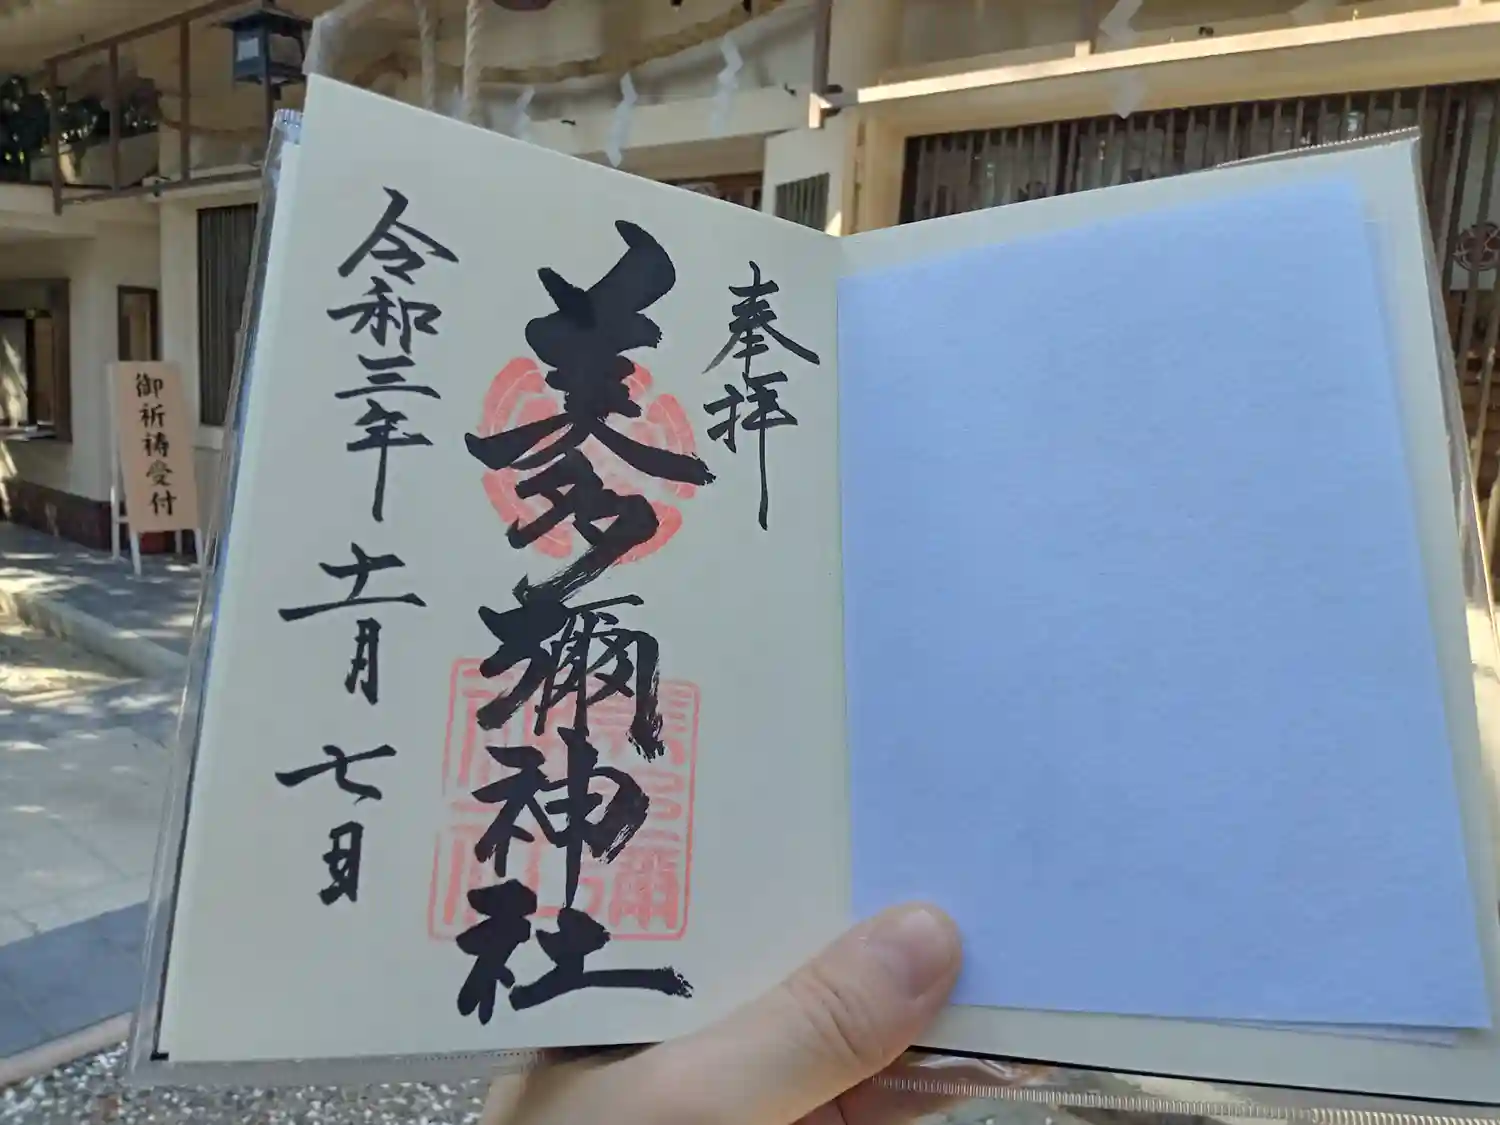 奉拝
美多彌神社
令和三年 十一月 七日
御祈祷受付